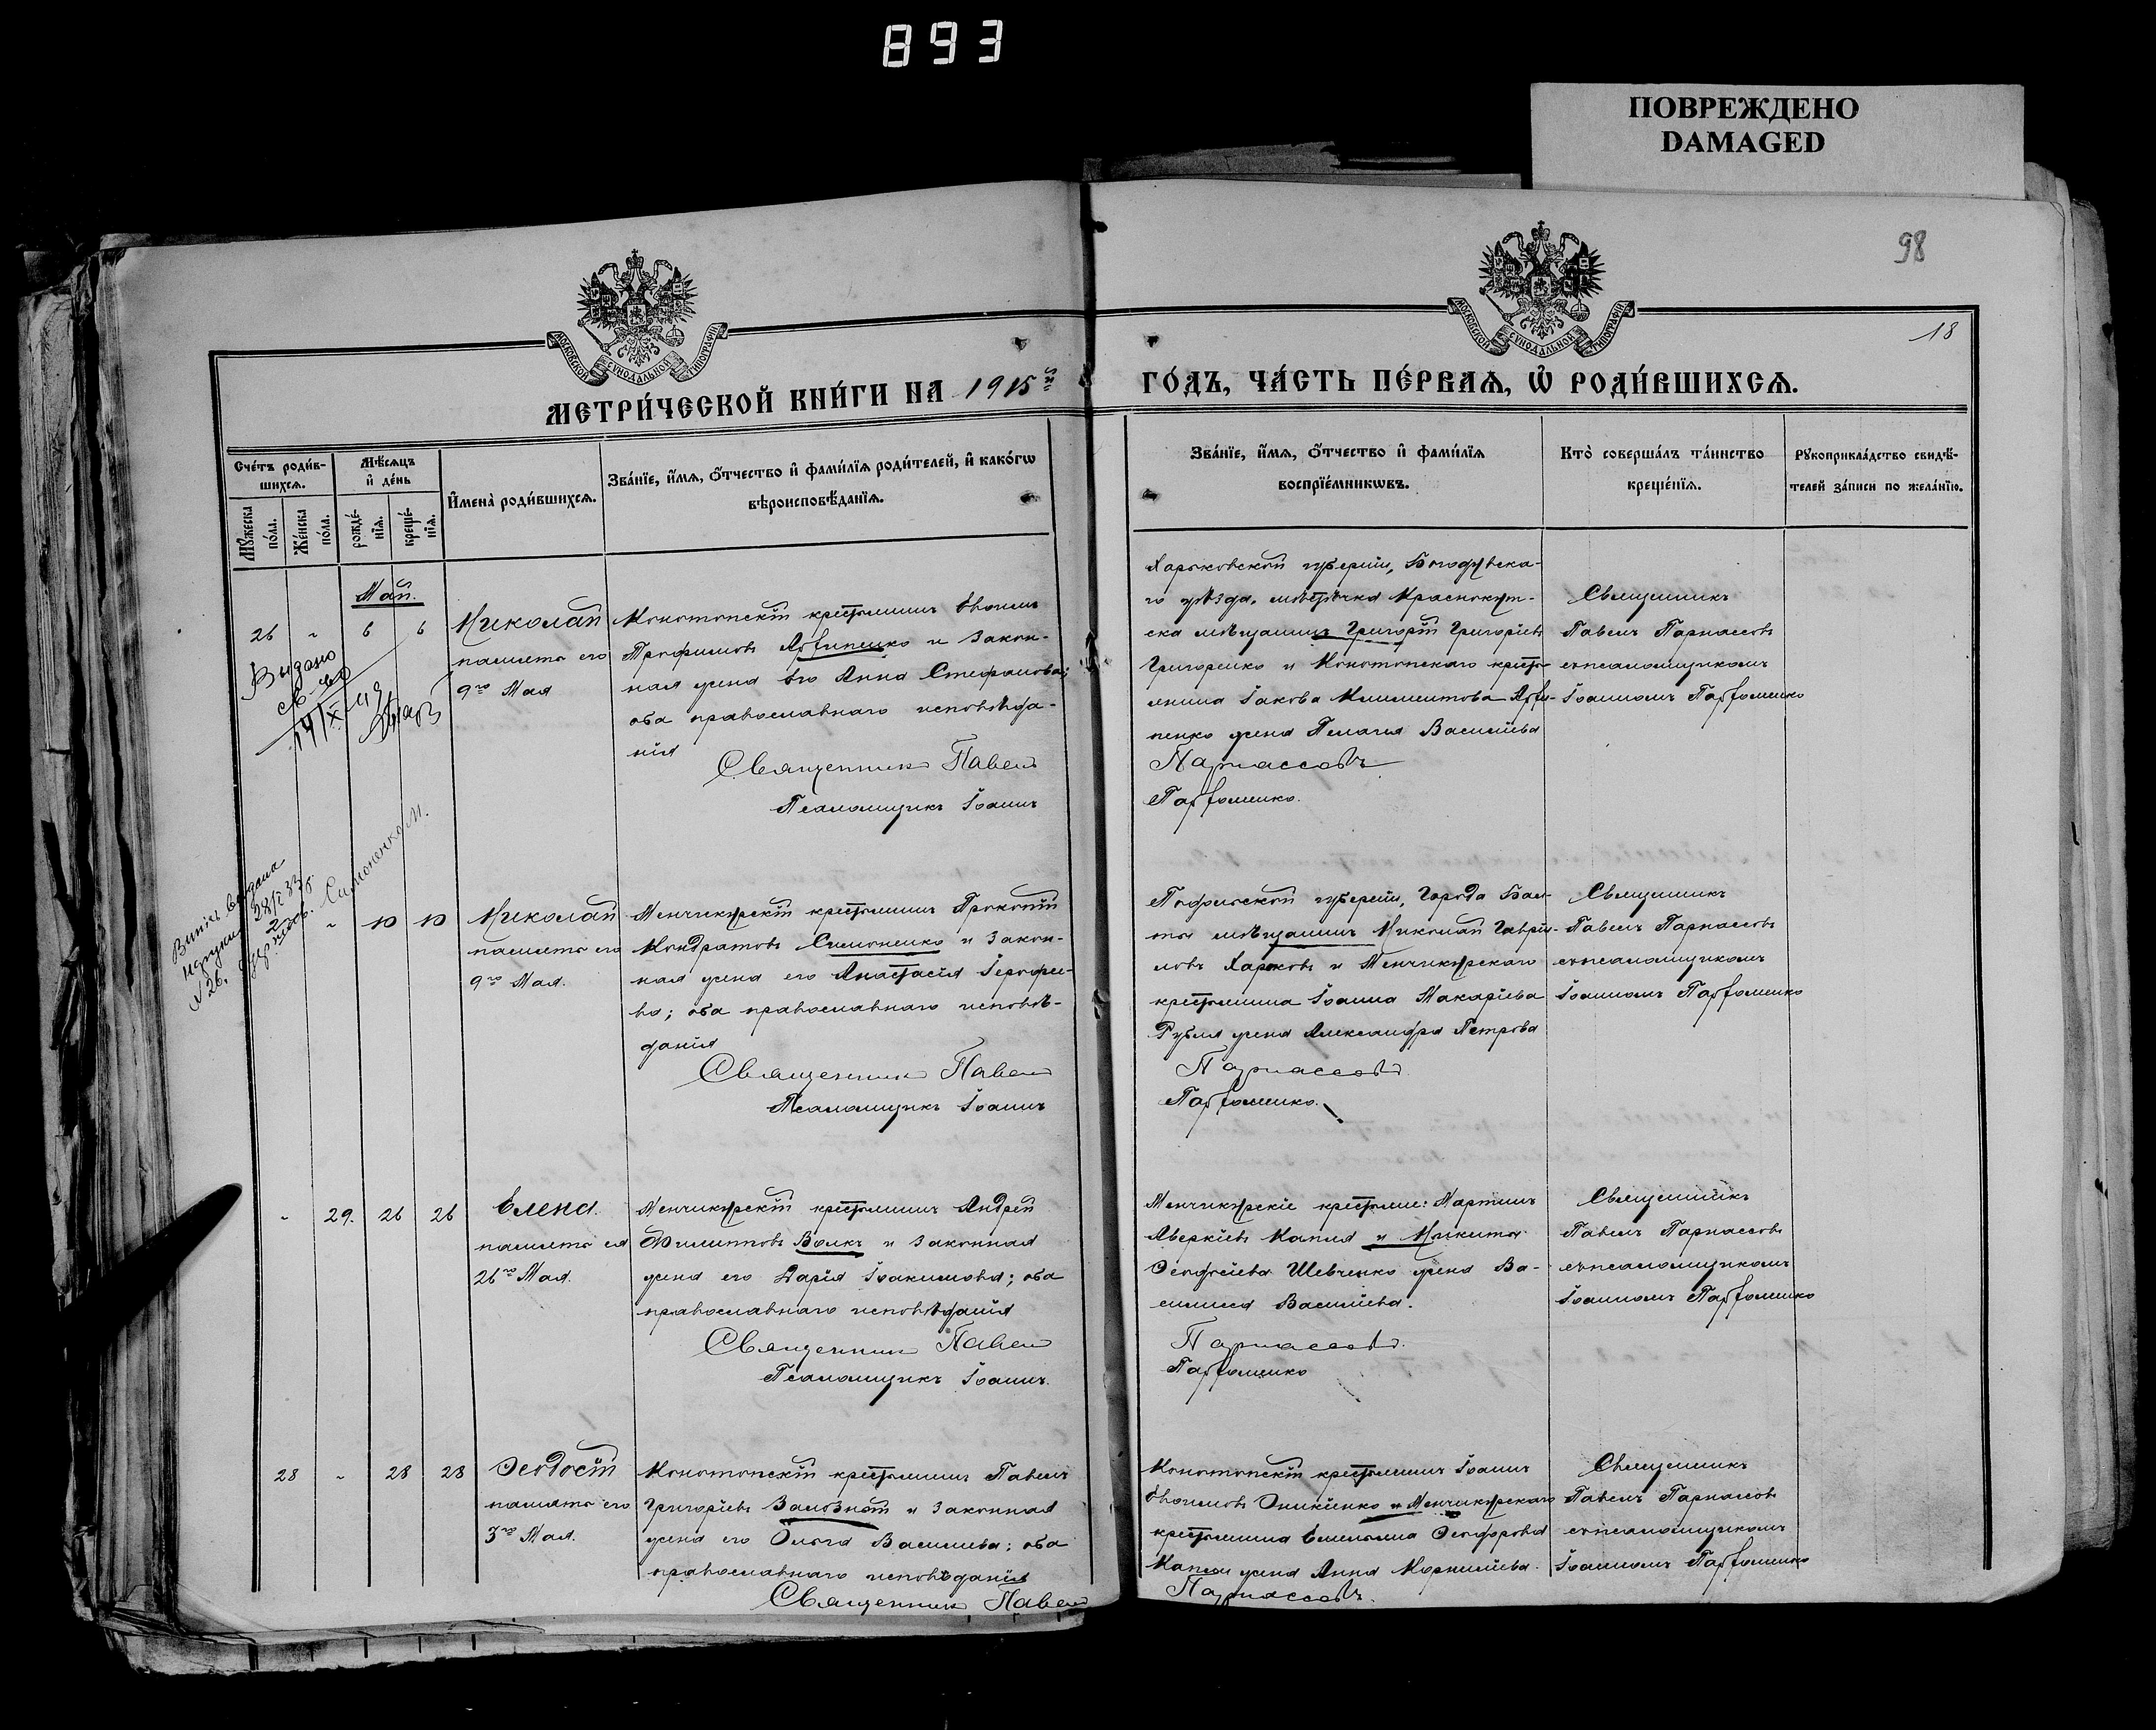 893
ПОВРЕЖДЕНО
DAMAGED
98
18
МОСКОВСКОЙ СѴНОДАЛЬНОЙ ТИПОГРАФІИ
МОСКОВСКОЙ СѴНОДАЛЬНОЙ ТИПОГРАФІИ
МЕТРИ́ЧЕСКОЙ КНИ́ГИ НА 1915 ГО́ДЪ, ЧА́СТЬ ПЕ́РВАѦ, Ѡ҆ РОДИ́ВШИХСѦ.
Сче́тъ роди́в-
шихсѧ.
Мꙋжеска по́ла.
Же́нска по́ла.
Мѣ́сѧцъ
и҆ де́нь
рожде́-
нїѧ.
креще́-
нїѧ.
И҆мена̀ роди́вшихсѧ.
Зва́нїе, и҆́мѧ, ѻ҆́тчество и҆ фами́лїѧ роди́телей, и҆ како́гѡ
вѣроисповѣ́данїѧ.
Зва́нїе, и҆́мѧ, ѻ҆́тчество и҆ фами́лїѧ
воспрїе́мникѡвъ.
Кто̀ соверша́лъ та́инство
креще́нїѧ.
Рꙋкоприкла́дство свидѣ́-
телей за́писи по жела́нїю.
Май.
26 " 6 6
Николай
память его
9го Мая
Конотопскій крестьянинъ Евѳимъ
Трофимовъ Арфипенко и закон-
ная жена его Анна Стефанова;
оба православнаго исповѣда-
нія
Священникъ Павелъ
Псаломщикъ Іоаннъ
Харьковской губерніи, Богодухвска-
го уѣзда, мѣстечка Краснокут-
ска мѣщанинъ Григорій Григорьевъ
Григоренко и Конотопскаго кресть-
янина Іакова Климентова Арфи-
пенко жена Пелагія Васильева
Парнассовъ
Парфоменко.
Священникъ
Павелъ Парнассовъ
съ псаломщикомъ
Іоанномъ Парфоменко
Выдано
св-во
14/X
Симоненко М.
Випись видана
28/I 33 р.
N 26.
" 10 10
Николай
память его
9го Мая.
Менчикурскій крестьянинъ Прокопій
Кондратовъ Симоненко и закон-
ная жена его Анастасія Іерофее-
ва; оба православнаго исповѣ-
данія
Священникъ Павелъ
Псаломщикъ Іоаннъ
Подольской губерніи, города Бал-
ты мѣщанинъ Николай Гаврі-
ловъ Харьковъ и Менчикурскаго
крестьянина Іоанна Макаріева
Рубля жена Александра Петрова
Парнассовъ
Парфоменко.
Священникъ
Павелъ Парнассовъ
съ псаломщикомъ
Іоанномъ Парфоменко
" 29. 26 26
Елена.
память ея
26го Мая.
Менчикурскій крестьянинъ Андрей
Филипповъ Волкъ и законная
жена его Дарія Іоакимова; оба
православнаго исповѣданія
Священникъ Павелъ
Псаломщикъ Іоаннъ.
Менчикурскіе крестьяне: Мартинъ
Аверкіевъ Капля и Никиты
Ѳеодосіева Шевченко жена Ва-
силиса Васильева.
Парнассовъ.
Парфоменко
Священникъ
Павелъ Парнассовъ
съ псаломщикомъ
Іоанномъ Парфоменко
28 " 28 28
Ѳеодосій
память его
3го Мая.
Конотопскій крестьянинъ Павелъ
Григоріевъ Замозной и законная
жена его Ольга Васильева; оба
православнаго исповѣданія
Священникъ Павелъ
Конотопскій крестьянинъ Іоаннъ
Евѳимовъ Оникіенко и Менчикурскаго
крестьянина Емельяна Ѳеодорова
Капли жена Анна Корнильева.
Парнассовъ.
Священникъ
Павелъ Парнассовъ
съ псаломщикомъ
Іоанномъ Парфоменко